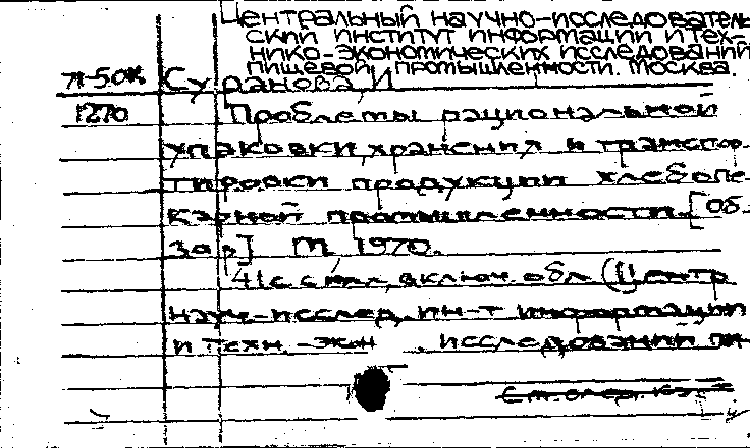 Центральный научно-исследователь-
ский институт информации и тех-
нико-экономических исследований
пищевой промышленности. Москва.
71-50К Суранова, И
1270 Проблемы рациональной
упаковки, хранения и транспор-
тировки продукции хлебопе-
карной промышленности. [Об-
зор] М, 1970.
41 с с илл, включ. обл (Центр
науч-исслед, ин-т информации
и техн. -экон , исследований пи-
См. след. к